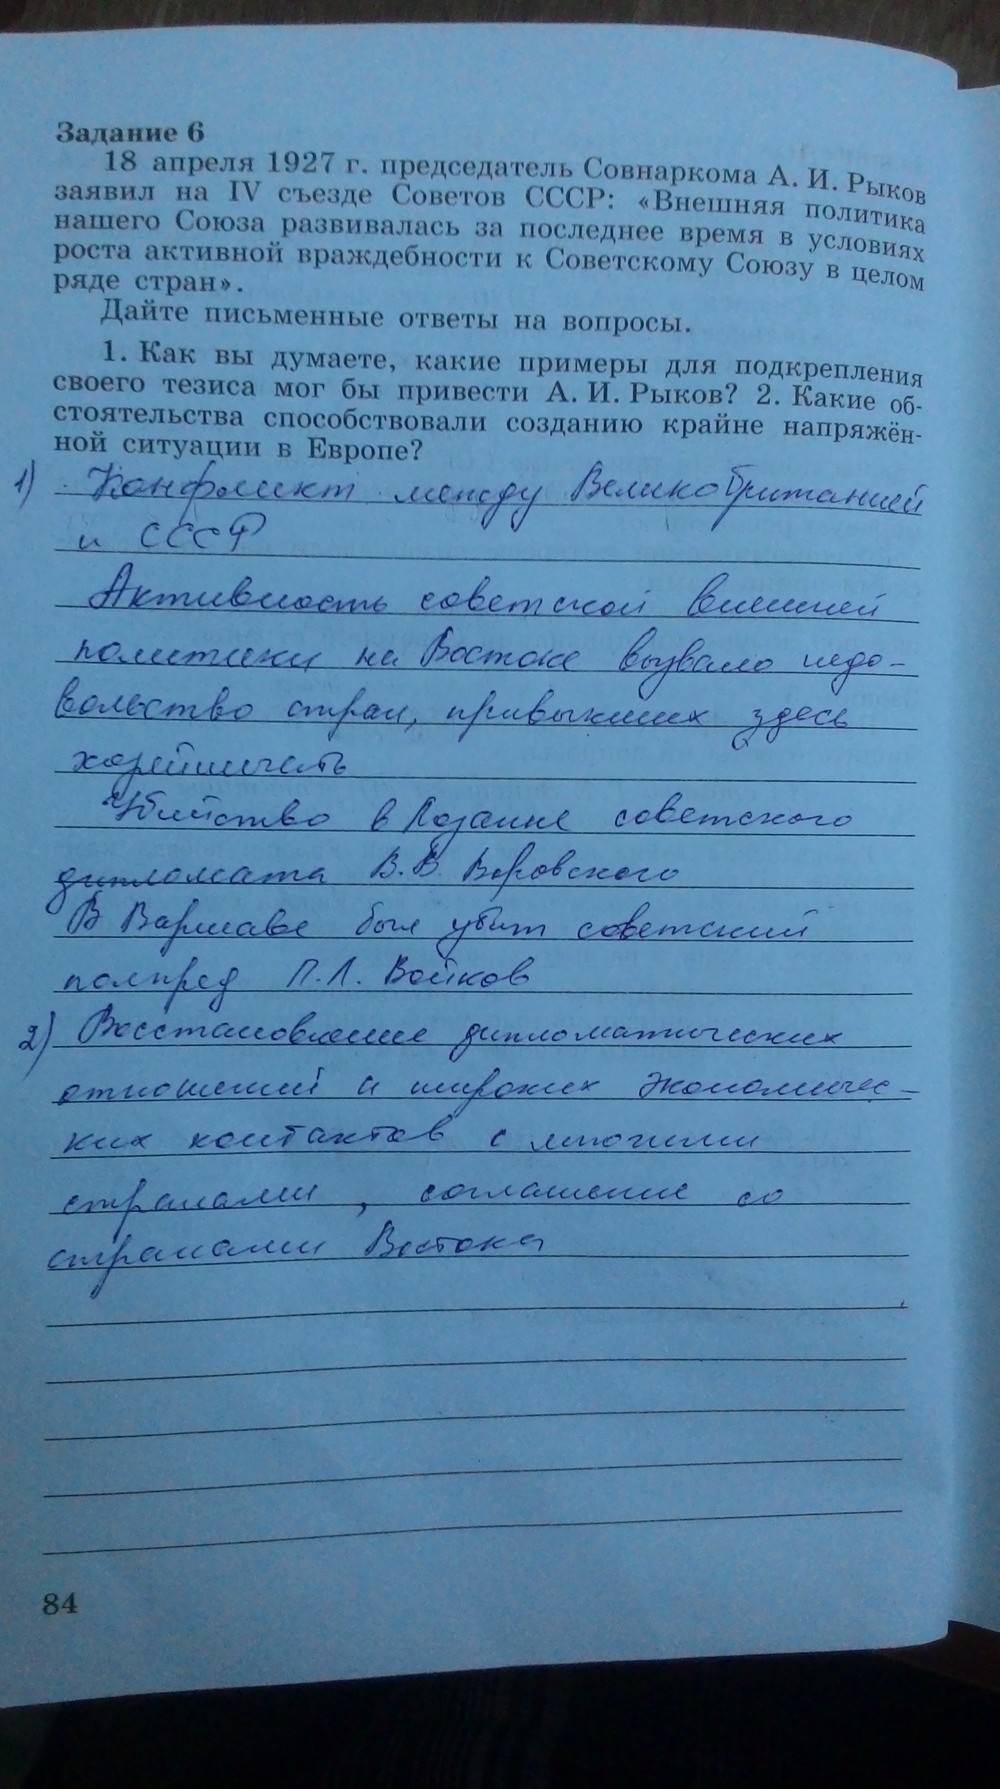 Задание 6
18 апреля 1927 г. председатель Совнаркома А. И. Рыков
заявил на IV съезде Советов СССР: «Внешняя политика
нашего Союза развивалась за последнее время в условиях
роста активной враждебности к Советскому Союзу в целом
ряде стран».
Дайте письменные ответы на вопросы.
1. Как вы думаете, какие примеры для подкрепления
своего тезиса мог бы привести А. И. Рыков? 2. Какие об-
стоятельства способствовали созданию крайне напряжён-
ной ситуации в Европе?
1) Конфликт между Великобританией
и СССР
Активность советской внешней
политики на Востоке вызвало недо-
вольство стран, привыкших здесь
хозяйничать
Убийство в Лозанне советского
дипломата В.В. Воровского
В Варшаве был убит советский
полпред П.Л. Войков
2) Восстановление дипломатических
отношений и широких экономичес-
ких контактов с многими
странами, соглашение со
странами Востока
84